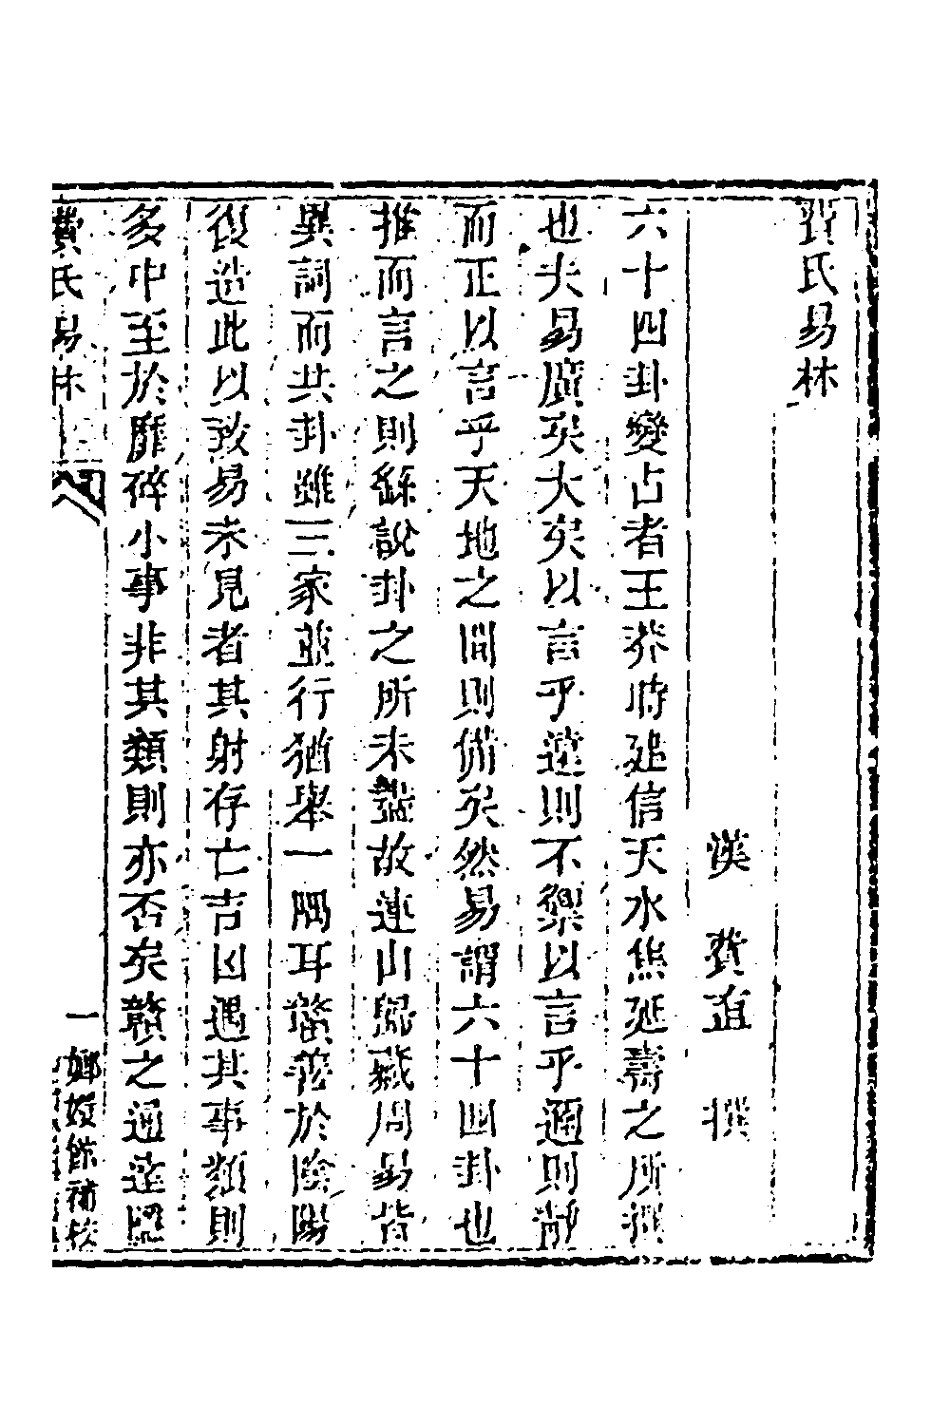 費氏易林
漢　費直　撰
六十四卦變占者王莽時建信天水焦延壽之所撰
也夫易廣矣大矣以言乎遠則不禦以言乎邇則靜
而正以言乎天地之間則備矣然易謂六十四卦也
推而言之則繇說卦之所未盡故連山歸藏周易皆
異詞而共卦雖三家並行猶舉一隅耳贛善於陰陽
復造此以致易未見者其射存亡吉凶遇其事類則
多中至於靡碎小事非其類則亦否矣贛之通達隱
費氏易林
一
嫏嬛館補校